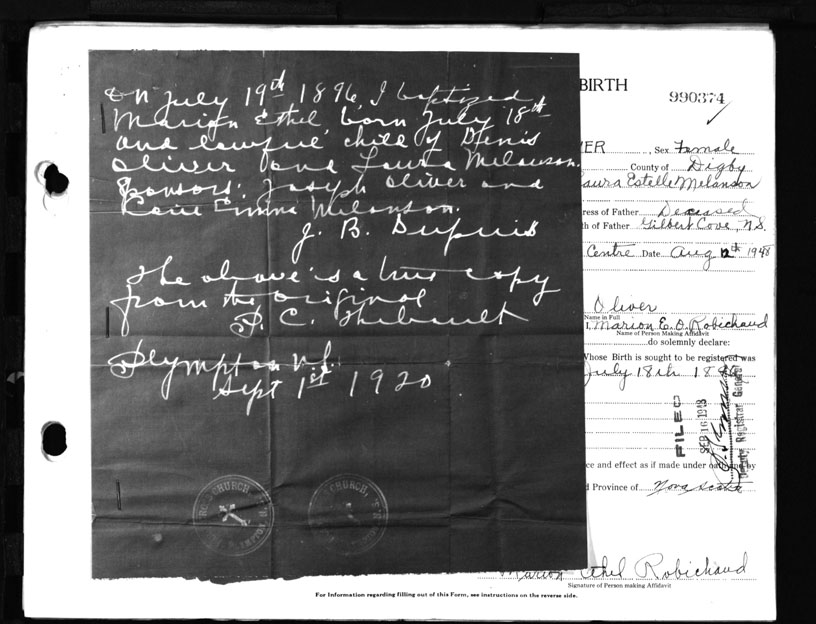 On July 19th 1896, I baptized
Marion Ethel born July 18th
and lawful child of Denis
Oliver and Laura Melanson.
Sponsors: Joseph Oliver and
Emma Melanson.
J. B. Dupuis
The above is a true copy
from the original
P. C. Thebault
Plympton N.S.
Sept 1st 1920
CHURCH
CHURCH,
BIRTH
990374
VER, Sex Female
County of Digby
aura Estelle Melanson
ress of Father Deceased
th of Father Gilbert Cove, N.S.
Centre Date Aug 12th 1948
Oliver
Name in Full
I, Marion E. O. Robichaud
Name of Person Making Affidavit
do solemnly declare:
Whose Birth is sought to be registered was
July 18th 1896
FILED
SEP 16 1948
Deputy Registrar General
ce and effect as if made under oath and by
d Province of Nova Scotia
Marion Ethel Robichaud
Signature of Person making Affidavit
For Information regarding filling out of this Form, see instructions on the reverse side.